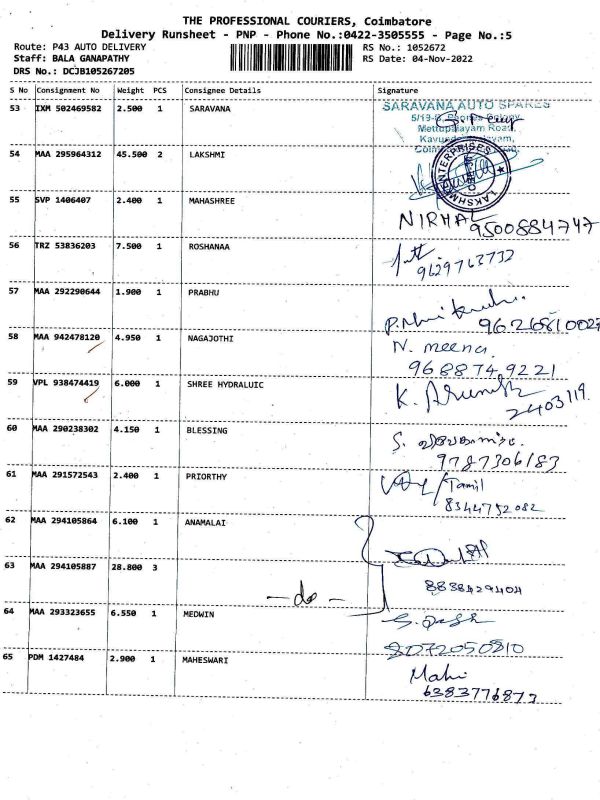 THE PROFESSIONAL COURIERS, Coimbatore
Delivery Runsheet - PNP - Phone No.:0422-3505555 - Page No.:5
Route: P43 AUTO DELIVERY RS No.: 1052672
Staff: BALA GANAPATHY RS Date: 04-Nov-2022
DRS No.: DCJB105267205
S No Consignment No Weight PCS Consignee Details Signature
53 IXM 502469582 2.500 1 SARAVANA
SARAVANA AUTO SPARES
Mettupalayam Road,
54 MAA 295964312 45.500 2 LAKSHMI
LAKSHMI ENTERPRISES
55 SVP 1406407 2.400 1 MAHASHREE
NIRMAL
9500884747
56 TRZ 53836203 7.500 1 ROSHANAA
9629763732
57 MAA 292290644 1.900 1 PRABHU
58 MAA 942478120 4.950 1 NAGAJOTHI
N. meena
9688749221
59 VPL 938474419 6.000 1 SHREE HYDRALUIC
2403119
60 MAA 290238302 4.150 1 BLESSING
9787306183
61 MAA 291572543 2.400 1 PRIORTHY
Tamil
8344752082
62 MAA 294105864 6.100 1 ANAMALAI
63 MAA 294105887 28.800 3
- do -
8838429404
64 MAA 293323655 6.550 1 MEDWIN
8072050810
65 PDM 1427484 2.900 1 MAHESWARI
Mahi
6383776877